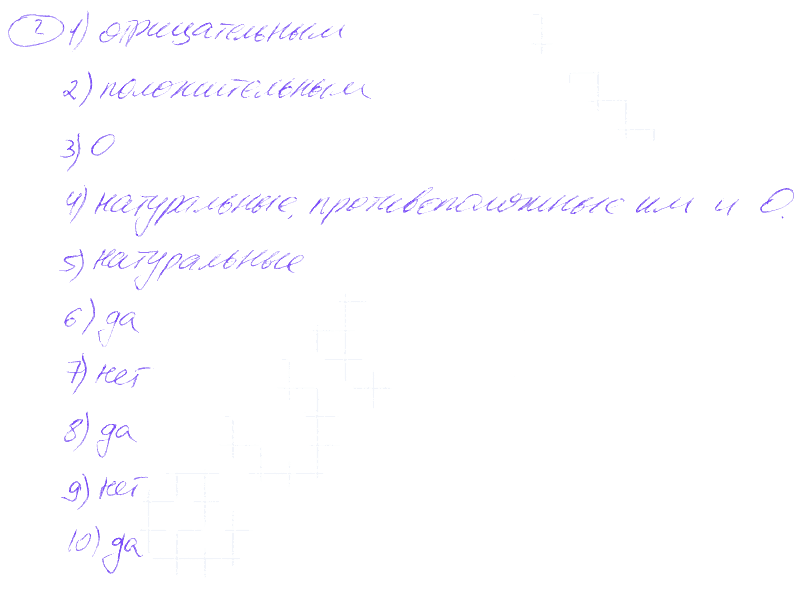 2 1) отрицательным
2) положительным
3) 0
4) натуральные, противоположные им и 0.
5) натуральные
6) да
7) нет
8) да
9) нет
10) да